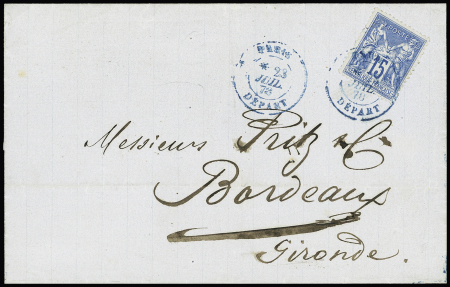 PARIS
23
JUIL
78
DÉPART
15
JUIL
78
DÉPART
Messieurs Pritz & C.
Bordeaux
Gironde.